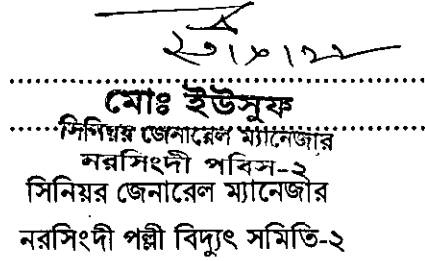 মোঃ ইউসুফ
সিনিয়র জেনারেল ম্যানেজার
নরসিংদী পবিস-২
সিনিয়র জেনারেল ম্যানেজার
নরসিংদী পল্লী বিদ্যুৎ সমিতি-২